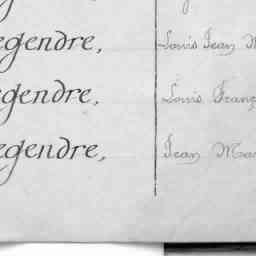 egendre, Louis Jean M
egendre, Louis Franç
egendre, Jean Ma